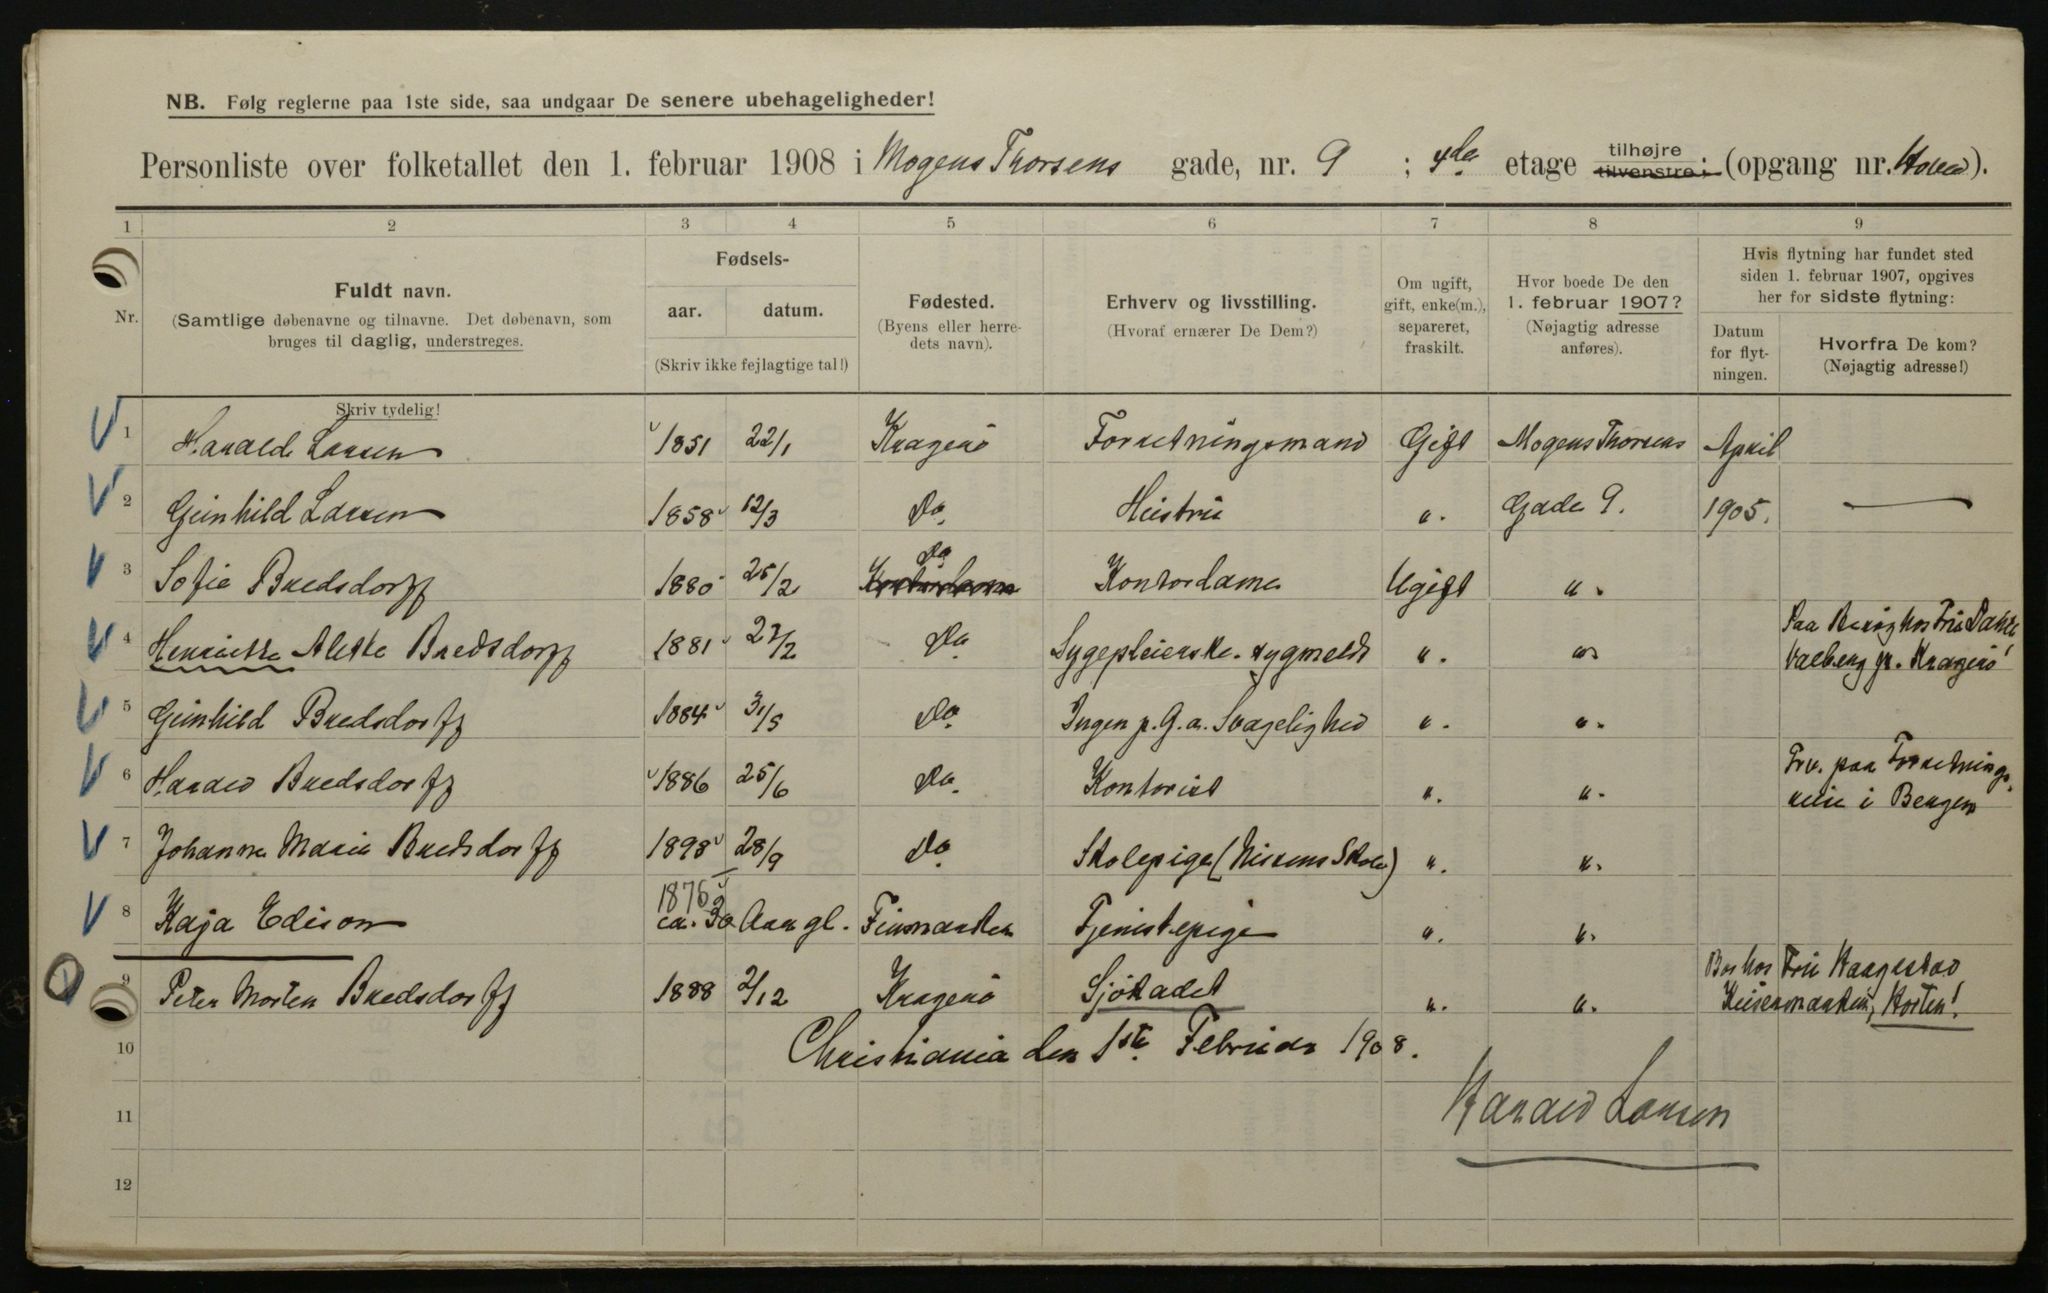 NB. Følg reglerne paa 1ste side, saa undgaar De senere ubehageligheder!
Personliste over folketallet den 1. februar 1908 i Mogens Thorsens gade, nr. 9 ; 4de etage tilhøjre tilvenstre; (opgang nr. Hoved).
1 2 3 4 5 6 7 8 9
Nr.
Fuldt navn.
(Samtlige døbenavne og tilnavne. Det døbenavn, som
bruges til daglig, understreges.
Skriv tydelig!
Fødsels-
aar. datum.
(Skriv ikke fejlagtige tal!)
Fødested.
(Byens eller herre-
dets navn).
Erhverv og livsstilling.
(Hvoraf ernærer De Dem?)
Om ugift,
gift, enke(m.),
separeret,
fraskilt.
Hvor boede De den
1. februar 1907?
(Nøjagtig adresse
anføres).
Hvis flytning har fundet sted
siden 1. februar 1907, opgives
her for sidste flytning:
Datum
for flyt-
ningen.
Hvorfra De kom?
(Nøjagtig adresse!)
1 Harald Larsen 1851 22/1 Kragerö Forretningsmand Gift Mogens Thorsens April
2 Gunhild Larsen 1858 12/3 Do. Hustru ". Gade 9. 1905. —
3 Sofie Bredsdorff 1880 25/2 Do Kontordame Ugift ".
4 Henriette Alette Bredsdorff 1881 27/2 Do Sygepleierske. sygmeldt ". " Paa Besøg hos Fru
Valberg pr. Kragerö!
5 Gunhild Bredsdorff 1884 31/5 Do. Ingen p. G. a. Svagelighed ". ".
6 Harald Bredsdorff 1886 25/6 Do. Kontorist ". ". Trv. paa Forretnings-
reise i Bergen
7 Johanne Marie Bredsdorff 1898 28/9 Do. Skolepige (Nissens Skole) ". ".
8 Kaja Edison 1876 ca. 30 Aar gl. Finmarken Tjenestepige ". ".
9 Peter Morten Bredsdorff 1888 2/12 Kragerö Sjökadet ". ". Bor hos Fru Haagestad
Keisemarken, Horten!
10 Christiania den 1ste Februar 1908.
11 Harald Larsen
12